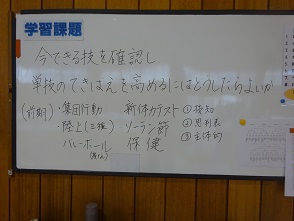 学習課題
今できる技を確認し
単技のできばえを高めるにはどうしたらよいか
(前期) ・集団行動 新体力テスト ①技知
・陸上(三種) ソーラン節 ②思判表
バレーボール 保健 ③主体的